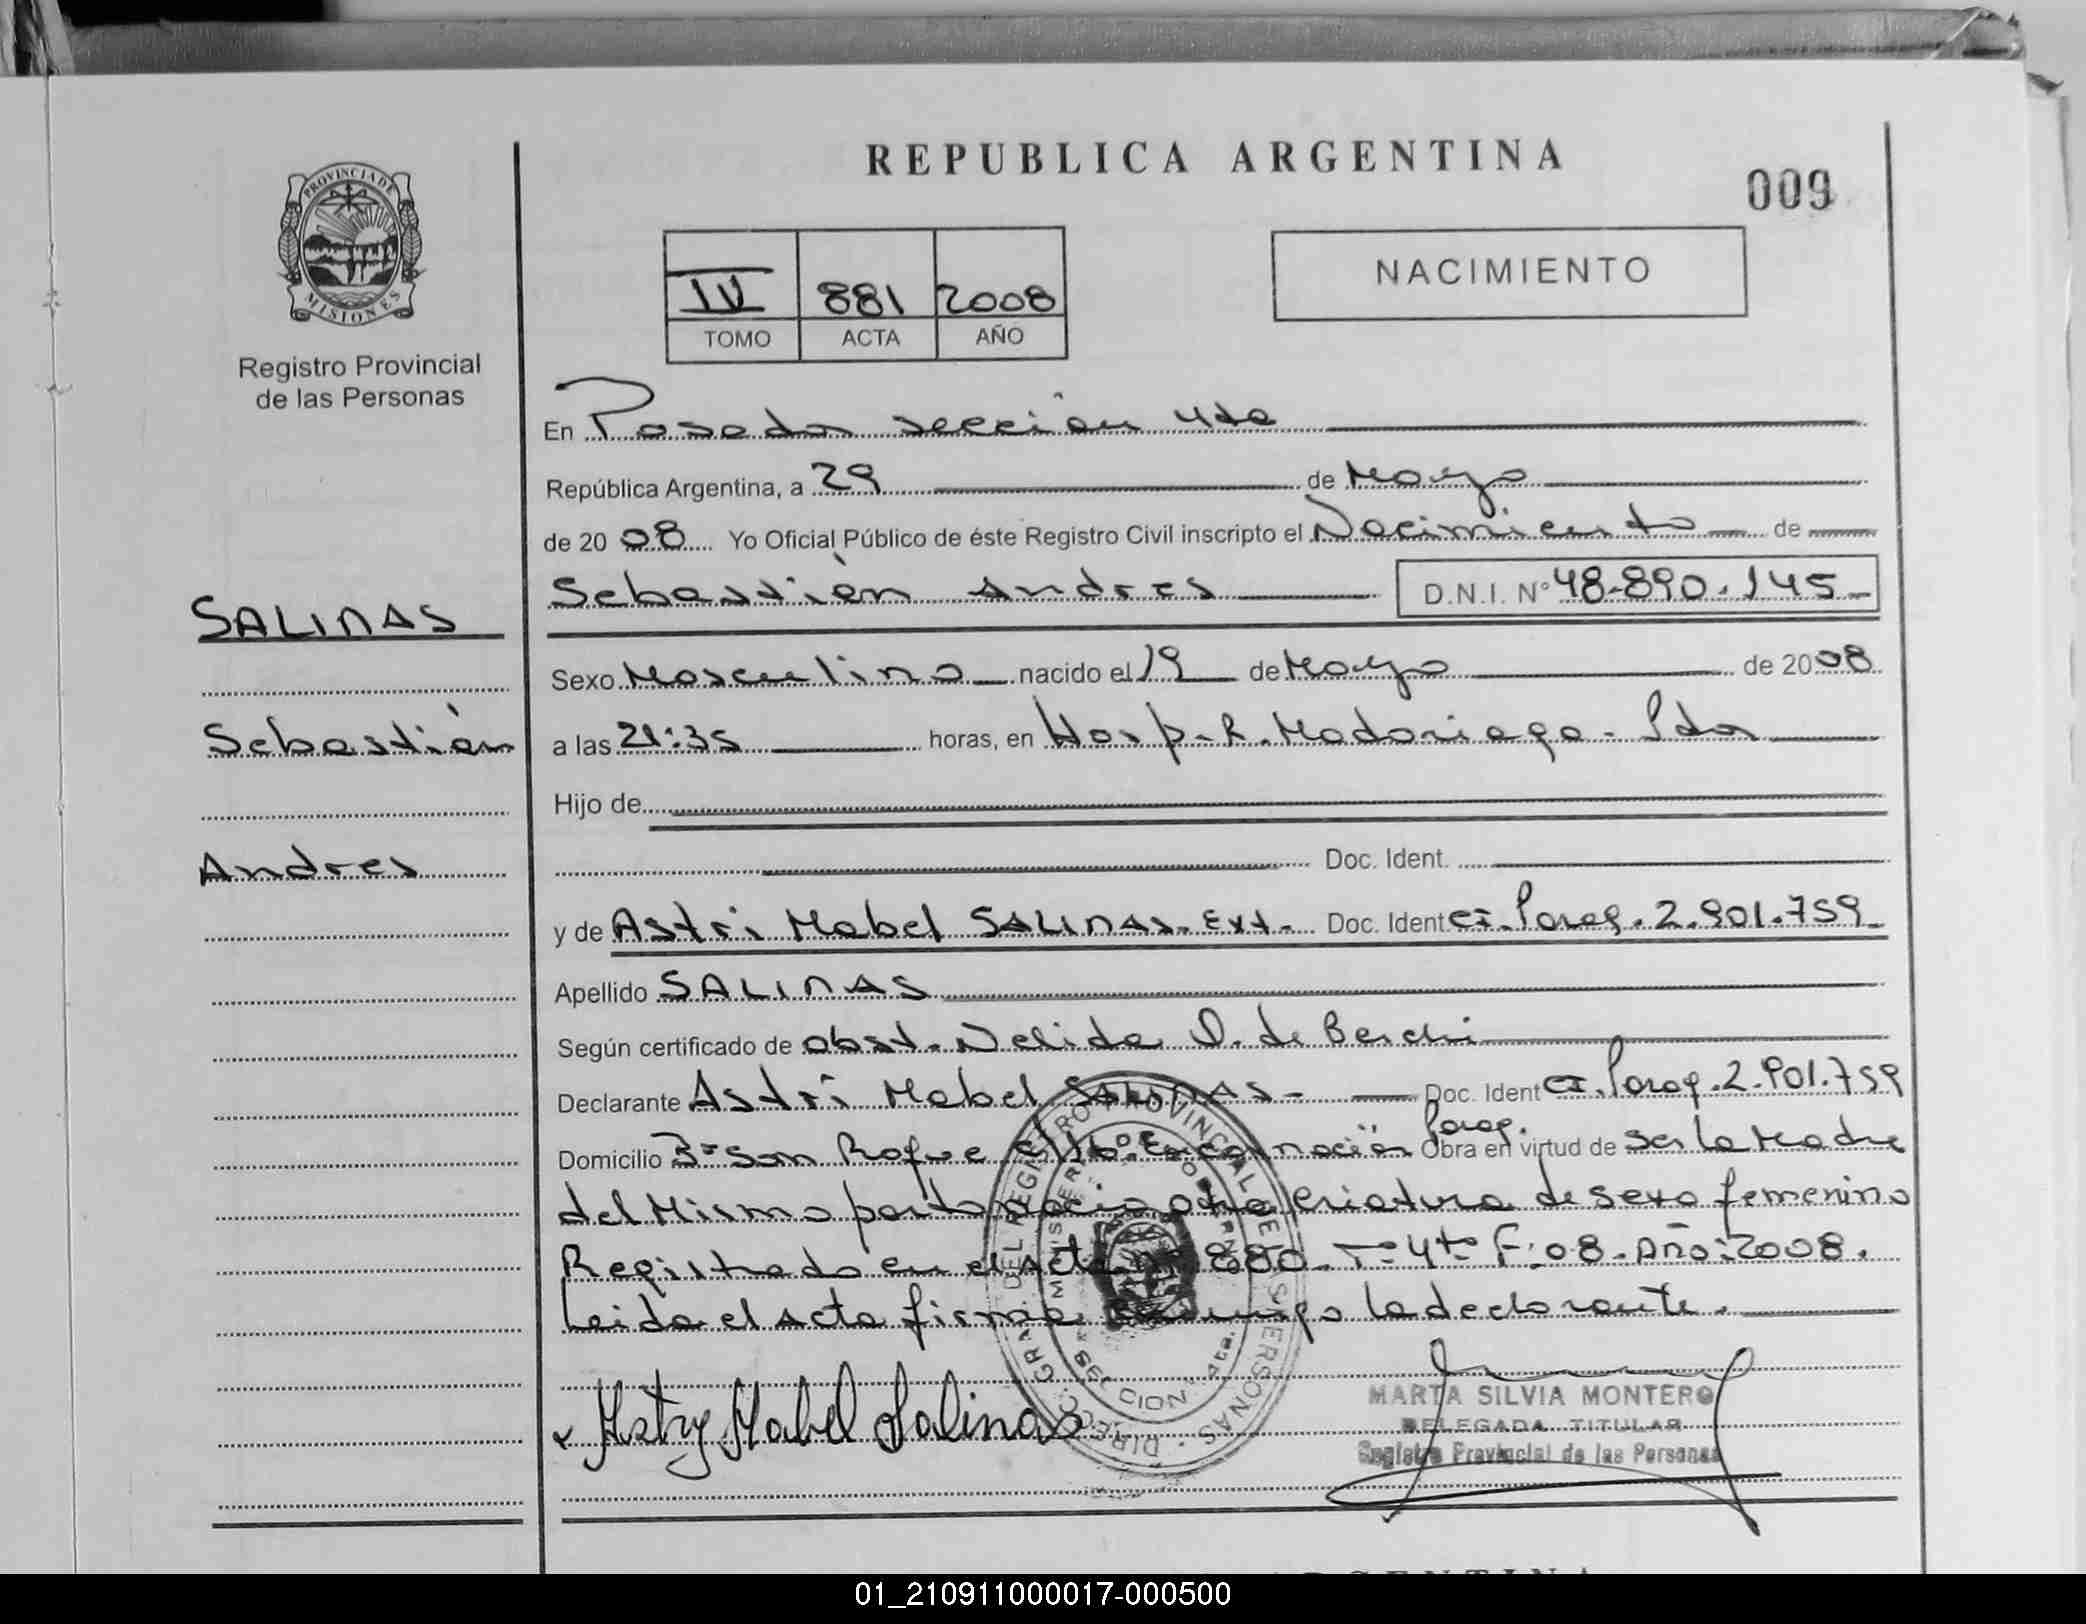 REPUBLICA ARGENTINA
009
PROVINCIA DE MISIONES
Registro Provincial
de las Personas
IV 881 2008
TOMO ACTA AÑO
NACIMIENTO
En Posadas sección 4ta
República Argentina, a 29 de Mayo
de 2008 Yo Oficial Público de éste Registro Civil inscripto el Nacimiento de
Sebastián Andres D.N.I. Nº 48.890.145
SALINAS
Sebastián
Andres
Sexo Masculino nacido el 19 de Mayo de 2008
a las 21:35 horas, en Hosp. R. Madariaga - Pdas
Hijo de
Doc. Ident.
y de Astri Mabel SALINAS. Ext. Doc. Ident CI. Parag. 2.901.759
Apellido SALINAS
Según certificado de obst. Nelida O. de
Declarante Astri Mabel SALINAS - Doc. Ident CI. Parag. 2.901.759
Domicilio Bº San Roque Encarnación Parag. Obra en virtud de ser la Madre
del Mismo parto nacio otra criatura de sexo femenino
Registrado en el acta nº 880 Tº 4to F: 08. Año: 2008.
Leida el acta firma conmigo la declarante.
Astry Mabel Salinas
MARTA SILVIA MONTERO
DELEGADA TITULAR
Registro Provincial de las Personas
01_210911000017-000500